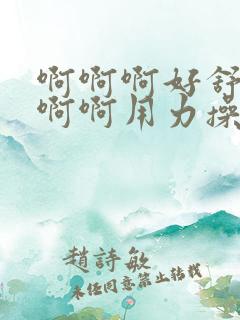 啊啊啊好舒
啊啊用力操
趙詩敏
未经同意禁止转载